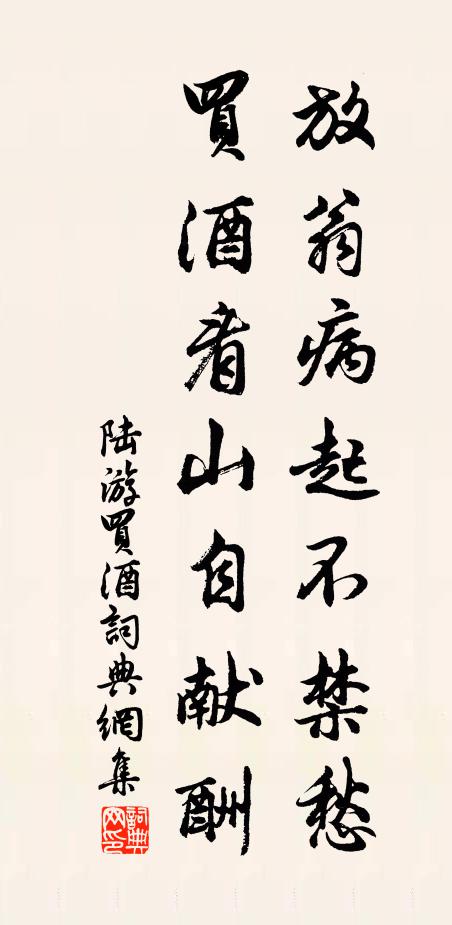 放翁病起不禁愁
買酒看山自献酬
陆游買酒詞典網集
詞典網印